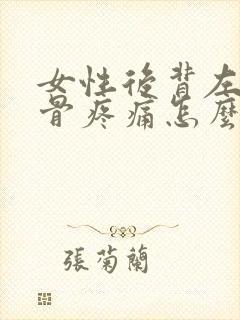 女性後背左
骨疼痛怎麼
張菊蘭